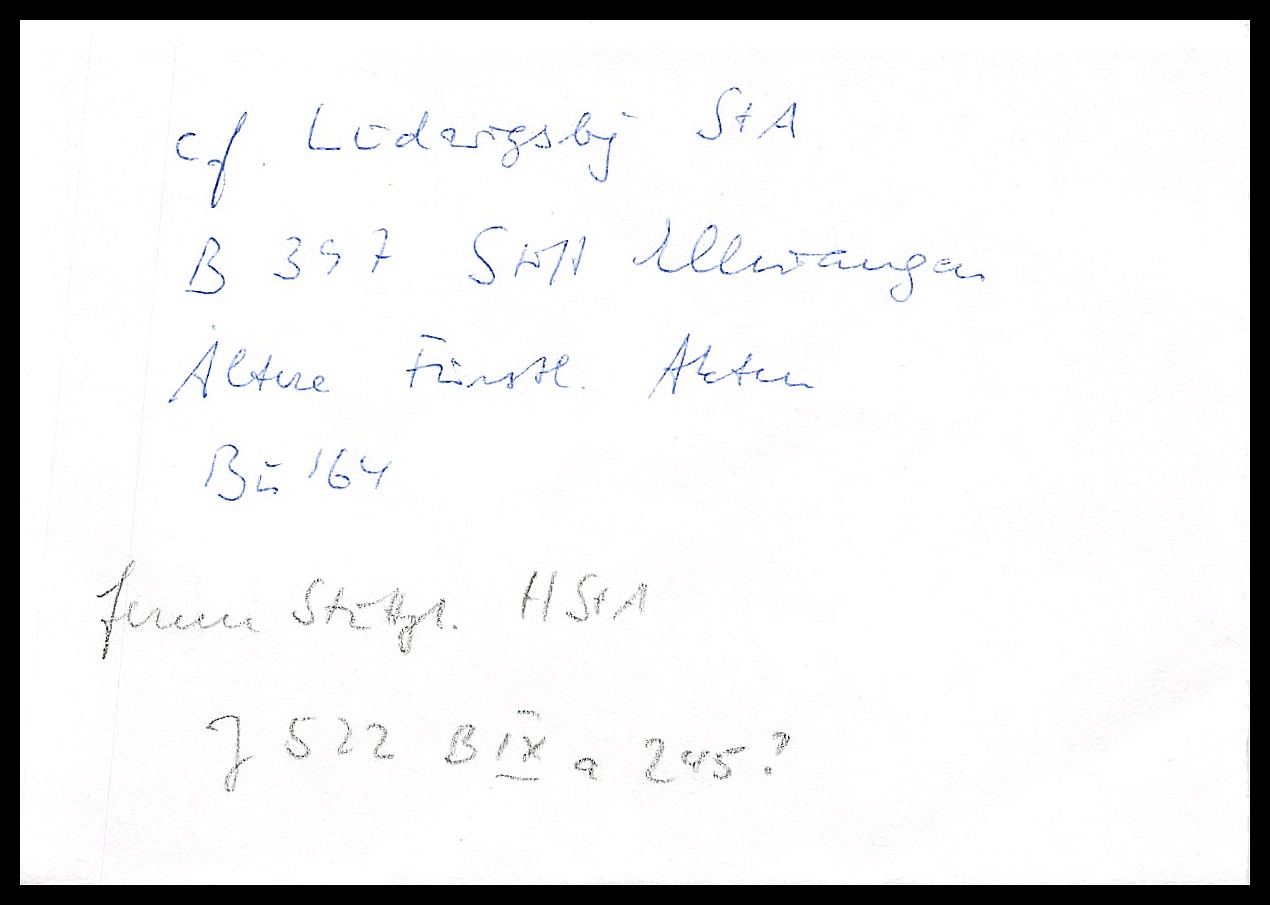 cf. Ludwigsbg StA
B 397 Stift Ellwangen
Ältere Fürstl. Akten
Bü 164
ferner Stuttgt. HStA
J 522 B IX a 245?